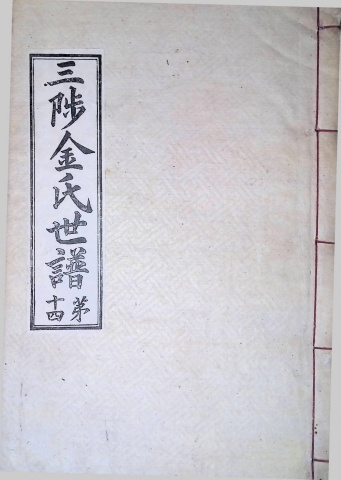 三陟金氏世譜
第十四